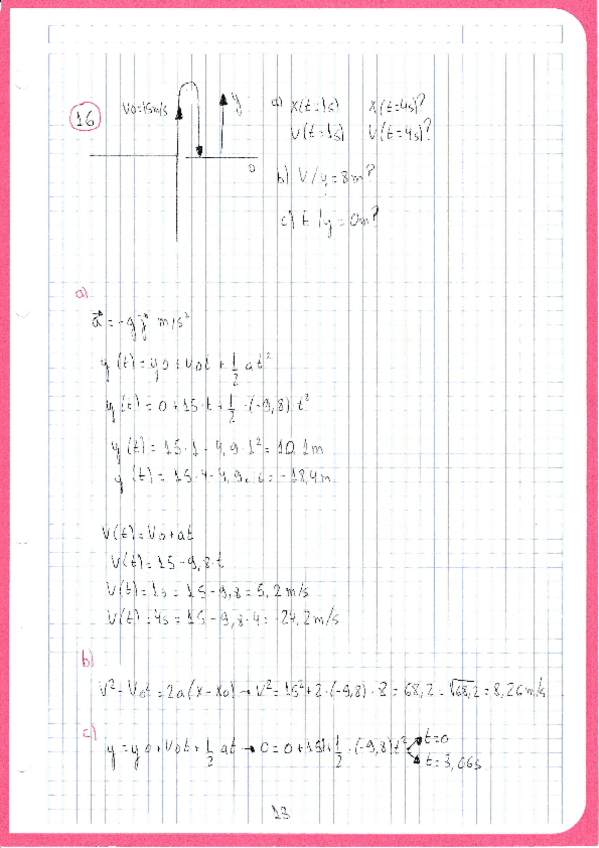 16
V0=15m/s
y
0
a) x(t=1s) x(t=4s)?
v(t=1s) v(t=4s)?
b) V/y=8m?
c) t/y=0m?
a)
a⃗=-g j⃗ m/s²
y(t)=y0+v0t+1/2 at²
y(t)=0+15·t+1/2·(-9,8)t²
y(t)=15·1-4,9·1²=10,1m
y(t)=15·4-4,9·16=-18,4m
V(t)=V0+at
V(t)=15-9,8·t
V(t)=1s=15-9,8=5,2m/s
V(t)=4s=15-9,8·4=-24,2m/s
b)
V²-V0²=2a(x-x0)→V²=15²+2·(-9,8)·8=68,2=√68,2=8,26m/s
c)
y=y0+V0t+1/2 at→0=0+15t+1/2·(-9,8)t² t=0
t=3,06s
13